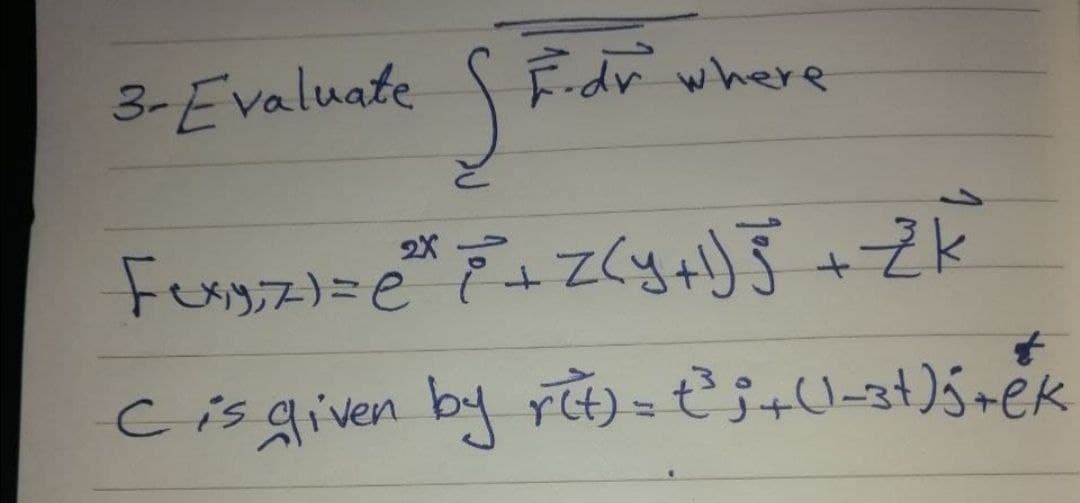 3- Evaluate ∫_C F⃗·dr⃗ where
F(x,y,z) = e^{2x} i⃗ + z(y+1) j⃗ + z^3 k⃗
C is given by r⃗(t) = t^3 i + (1-3t) j + e^t k